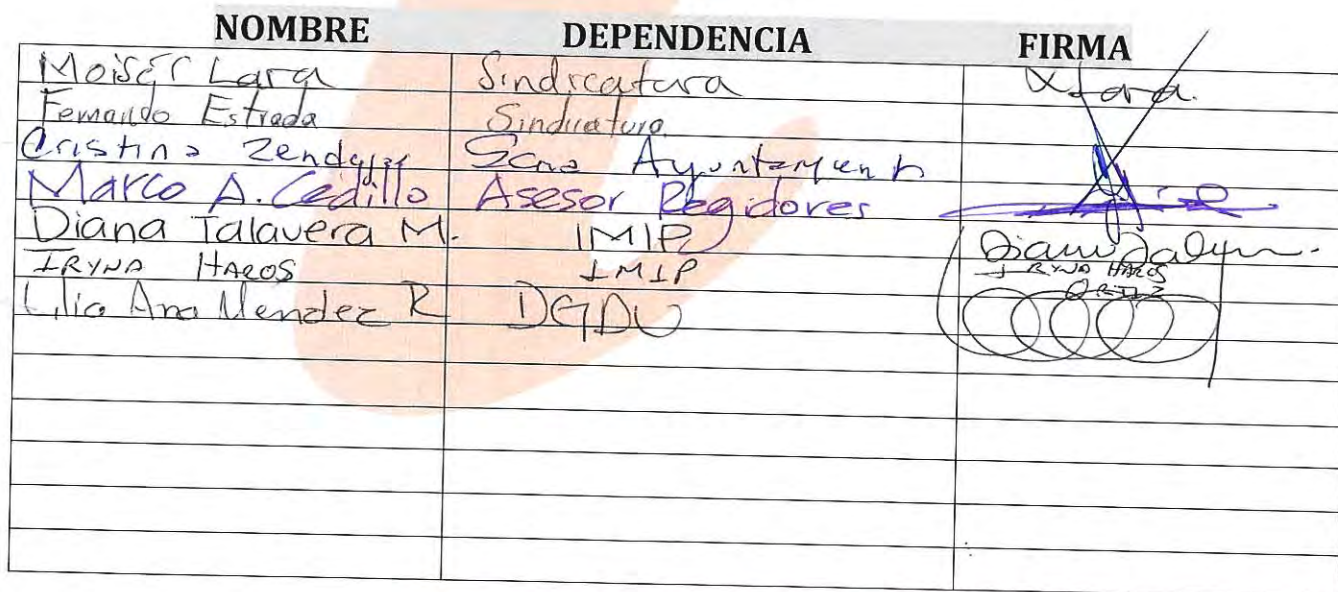 NOMBRE DEPENDENCIA FIRMA
Moisés Lara Sindicatura Lara.
Fernando Estrada Sindicatura
Cristina Ayuntamiento
Marco A. Cedillo Asesor Regidores
Diana Talavera M. IMIP
IRYNA HAROS IMIP IRYNA HAROS
ORTIZ
Lilia Ana Mendez R DGDU